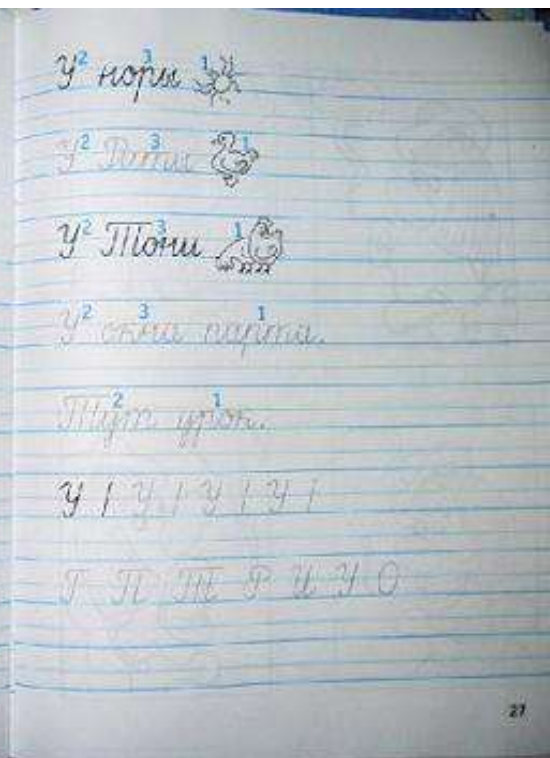 У² норы ³ ¹
У² Риты ³ ¹
У² Тони ³ ¹
У² окна ³ парта. ¹
Тут ² урок. ¹
У | У | У | У |
Г П Т Р И У О
27